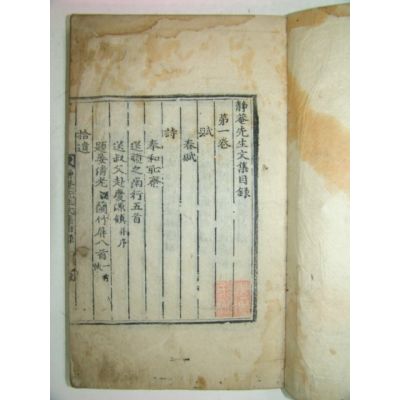 靜菴先生文集目錄
第一卷
賦
春賦
詩
奉和耻齋
送順之南行五首
送叔父赴慶源鎮 并序
題姜清老 蘭竹屏八首
拾遺